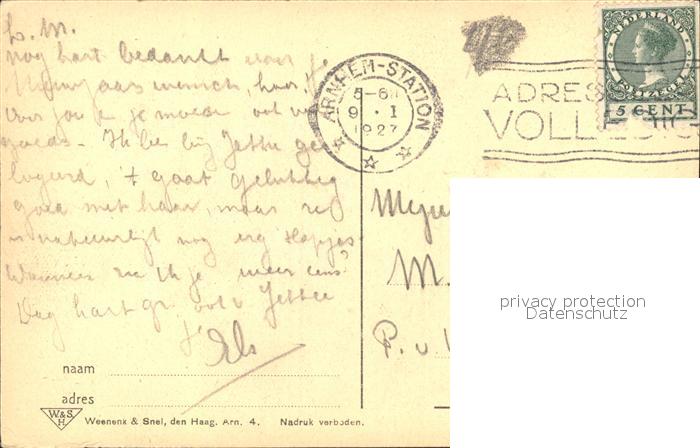 L. M.
nog hart bedankt voor je
Nieuwjaarswensch, hoor. Ik
voor jou en je moeder ook veel
goeds. Ik ben bij Jettie ge-
logeerd, 't gaat gelukkig
goed met haar, maar ze
is natuurlijk nog erg
Wanneer zie ik je weer eens?
Dag hart. gr. ook v. Jettie
Els
naam
adres
W&S
H
Weenenk & Snel, den Haag. Arn. 4. Nadruk verboden.
ARNHEM-STATION
5-6
9 . I
1927
ADRES
VOLLEDIG
NEDERLAND
POSTZEGEL
5 CENT
M.
P. v
privacy protection
Datenschutz